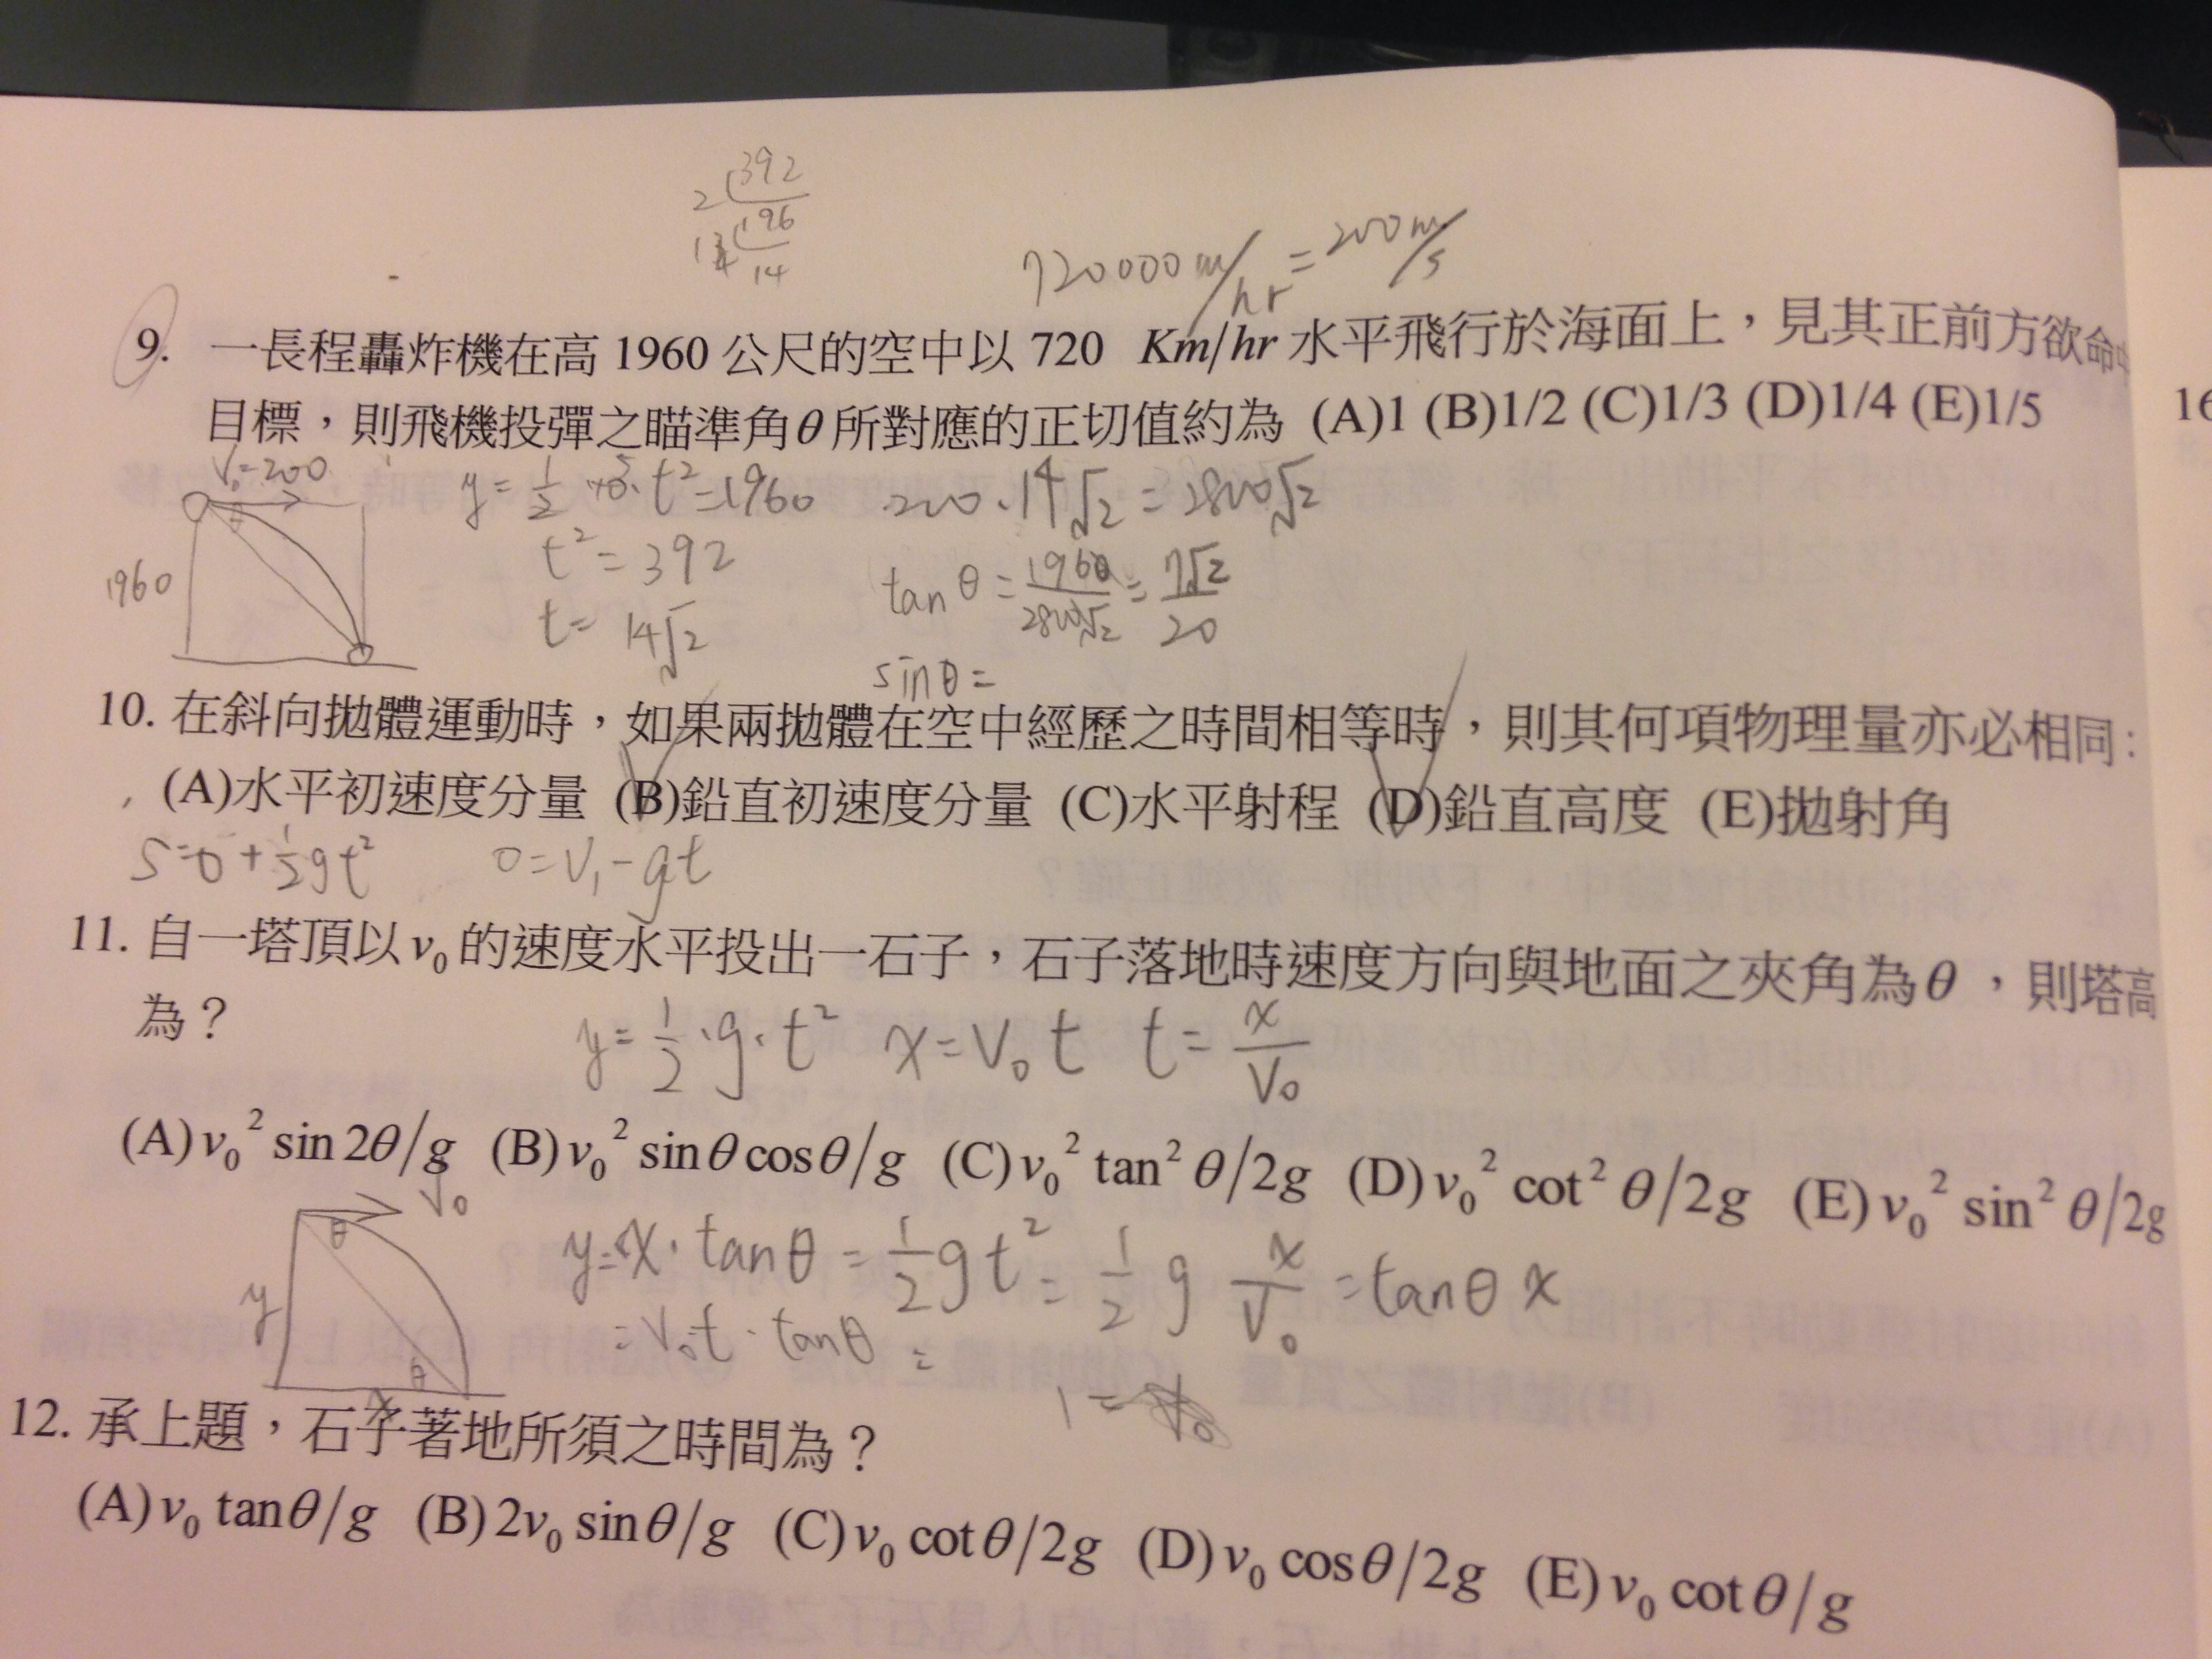 2 392
14 196
14
720000 m/hr = 200 m/s
9. 一長程轟炸機在高 1960 公尺的空中以 720 Km/hr 水平飛行於海面上，見其正前方欲命中
目標，則飛機投彈之瞄準角θ所對應的正切值約為 (A)1 (B)1/2 (C)1/3 (D)1/4 (E)1/5
16
V₀=200
y = 1/2 · 10 · t² = 1960
5
200 · 14√2 = 2800√2
θ
1960
t² = 392
tan θ = 1960/2800√2 = 7√2/20
t = 14√2
sin θ =
10. 在斜向拋體運動時，如果兩拋體在空中經歷之時間相等時，則其何項物理量亦必相同：
(A)水平初速度分量 (B)鉛直初速度分量 (C)水平射程 (D)鉛直高度 (E)拋射角
S = 0 + 1/2 gt² 0 = V₁ - gt
11. 自一塔頂以v₀的速度水平投出一石子，石子落地時速度方向與地面之夾角為θ，則塔高
為？
y = 1/2 · g · t² x = V₀ t t = x/V₀
(A) v₀² sin 2θ/g (B) v₀² sinθ cosθ/g (C) v₀² tan² θ/2g (D) v₀² cot² θ/2g (E) v₀² sin² θ/2g
V₀
θ
y = x · tan θ = 1/2 gt² = 1/2 g x/V₀ = tan θ x
y
= V₀t · tan θ =
θ
x
1 =
12. 承上題，石子著地所須之時間為？
(A) v₀ tanθ/g (B) 2v₀ sinθ/g (C) v₀ cotθ/2g (D) v₀ cosθ/2g (E) v₀ cotθ/g